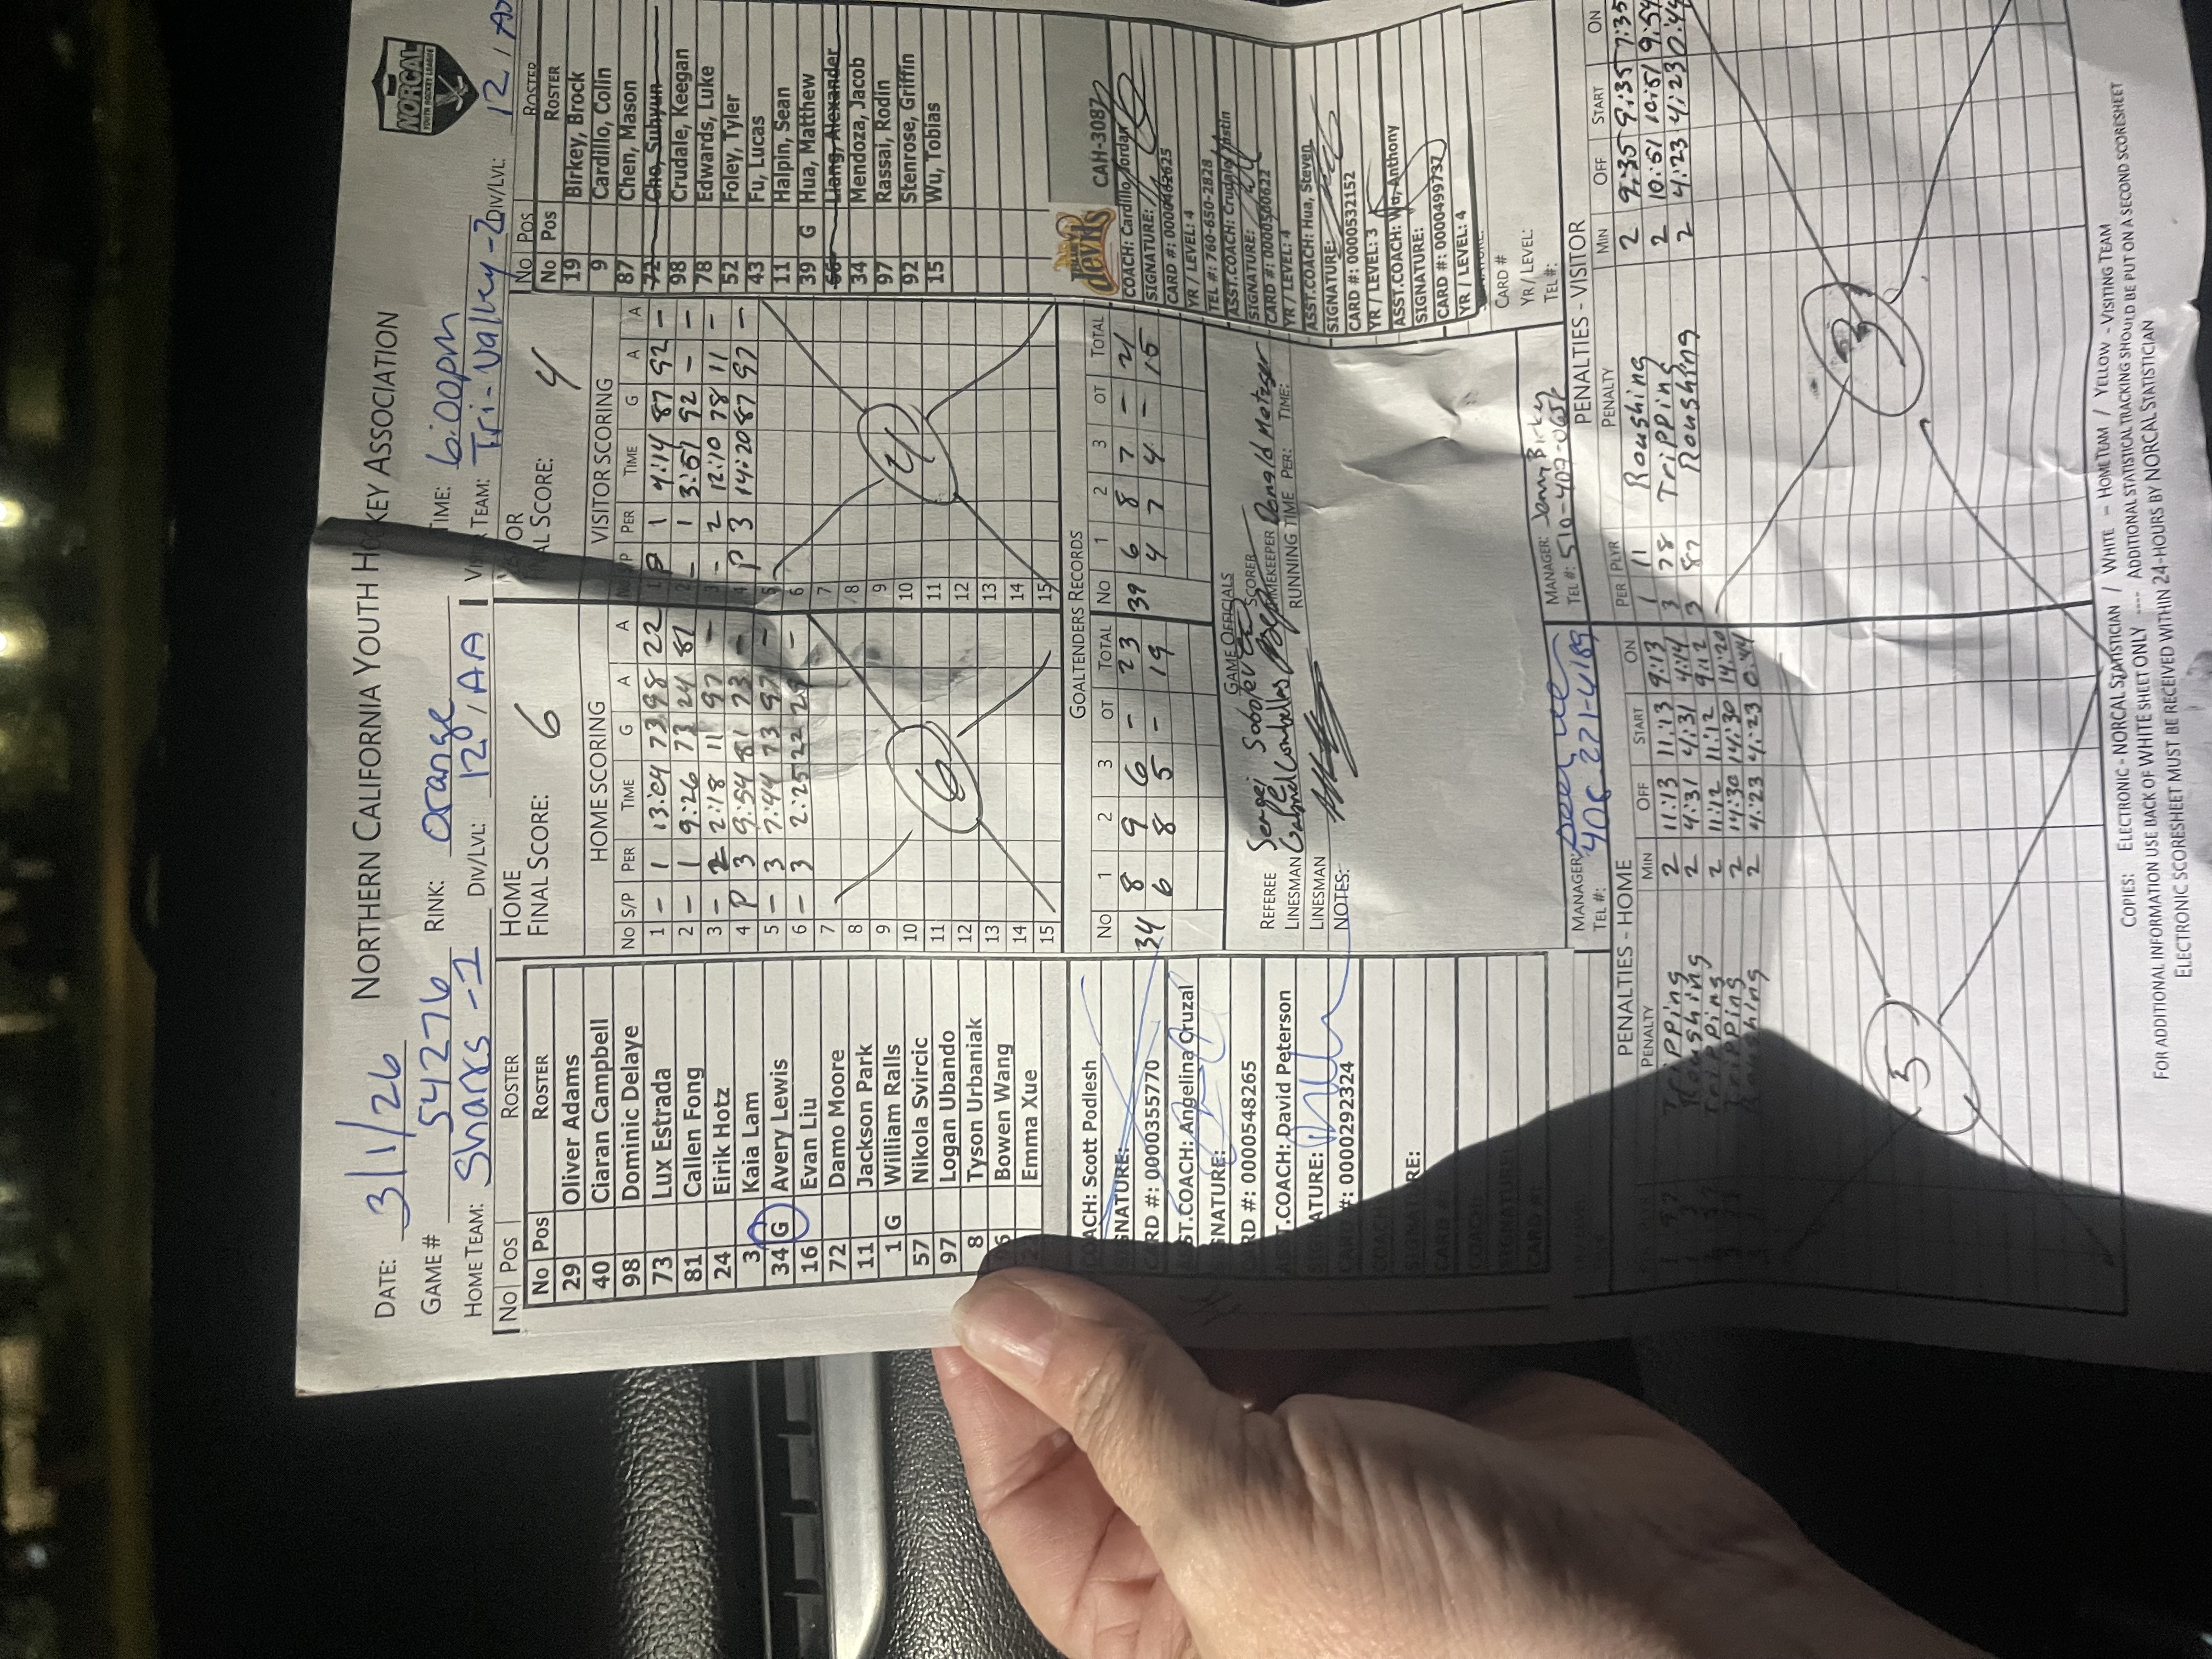 NORCAL
YOUTH HOCKEY LEAGUE
NORTHERN CALIFORNIA YOUTH HOCKEY ASSOCIATION
DATE: 3/1/26
GAME # 54276 RINK: Orange TIME: 6:00pm
HOME TEAM: Sharks -1 DIV/LVL: 12U, AA Tri-Valley-2 DIV/LVL: 12, A
No Pos ROSTER
No Pos ROSTER
29 Oliver Adams
40 Ciaran Campbell
98 Dominic Delaye
73 Lux Estrada
81 Callen Fong
24 Eirik Hotz
3 Kaia Lam
34 G Avery Lewis
16 Evan Liu
72 Damo Moore
11 Jackson Park
1 G William Ralls
57 Nikola Svircic
97 Logan Ubando
8 Tyson Urbaniak
Bowen Wang
Emma Xue
HOME
FINAL SCORE: 6
HOME SCORING
No S/P PER TIME G A A
1 - 1 13:04 73 98 22
2 - 1 9:26 73 24 81
3 - 2 2:18 11 97 -
4 P 3 9:54 81 73 -
5 - 3 7:44 73 97 -
6 - 3 2:25 22 29 -
7
8
9
10
11
12
13
14
15
6
FINAL SCORE: 4
VISITOR SCORING
PER TIME G A A
1 P 1 4:14 87 92 -
2 - 1 3:51 92 - -
3 - 2 12:10 78 11 -
4 P 3 14:20 87 97 -
5
6
7
8
9
10
11
12
13
14
15
4
No Pos ROSTER
No Pos ROSTER
19 Birkey, Brock
9 Cardillo, Colin
87 Chen, Mason
72 Cho, Subyun
98 Crudale, Keegan
78 Edwards, Luke
52 Foley, Tyler
43 Fu, Lucas
11 Halpin, Sean
39 G Hua, Matthew
66 Liang, Alexander
34 Mendoza, Jacob
97 Rassai, Rodin
92 Stenrose, Griffin
15 Wu, Tobias
COACH: Scott Podlesh
SIGNATURE:
CARD #: 0000355770
ASST.COACH: Angelina Cruzal
SIGNATURE:
CARD #: 0000548265
ASST.COACH: David Peterson
SIGNATURE:
CARD #: 0000292324
GOALTENDERS RECORDS
No 1 2 3 OT TOTAL No 1 2 3 OT TOTAL
34 8 9 6 - 23 39 6 8 7 - 21
6 8 5 - 19 4 7 4 - 15
GAME OFFICIALS
REFEREE Sergei SCORER
LINESMAN Gabriel TIMEKEEPER Donald Metzger
LINESMAN RUNNING TIME PER: TIME:
NOTES:
devils
CAH-3087
COACH: Cardillo, Jordan
SIGNATURE:
CARD #: 0000462625
YR / LEVEL: 4
TEL #: 760-650-2828
ASST.COACH: Crudale, Justin
SIGNATURE:
CARD #: 0000500622
YR / LEVEL: 4
ASST.COACH: Hua, Steven
SIGNATURE:
CARD #: 0000532152
YR / LEVEL: 3
ASST.COACH: Wu, Anthony
SIGNATURE:
CARD #: 0000499737
YR / LEVEL: 4
CARD #
YR / LEVEL:
TEL #:
MANAGER:
TEL #: 408 221-4189
MANAGER: Jenny Birkey
TEL #: 510-407-0657
PENALTIES - HOME
PENALTY MIN OFF START ON
Tripping 2 11:13 11:13 9:13
Roughing 2 4:31 4:31 4:14
Tripping 2 11:12 11:12 9:12
Tripping 2 14:30 14:30 14:20
Roughing 2 4:23 4:23 0:44
5
PENALTIES - VISITOR
PER PLYR PENALTY MIN OFF START ON
1 11 Roughing 2 9:35 9:35 7:35
3 78 Tripping 2 10:51 10:51 9:54
3 87 Roughing 2 4:23 4:23 0:44
3
COPIES: ELECTRONIC - NORCAL STATISTICIAN / WHITE - HOME TEAM / YELLOW - VISITING TEAM
FOR ADDITIONAL INFORMATION USE BACK OF WHITE SHEET ONLY ---- ADDITIONAL STATISTICAL TRACKING SHOULD BE PUT ON A SECOND SCORESHEET
ELECTRONIC SCORESHEET MUST BE RECEIVED WITHIN 24-HOURS BY NORCAL STATISTICIAN